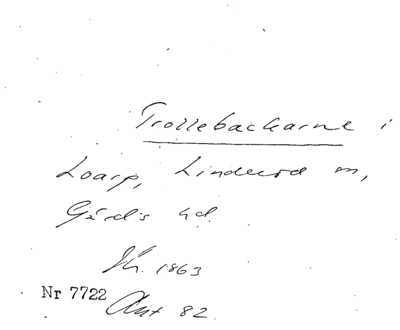 Trollebackarne i
Loarp, Linderöd sn,
Gärds hd.
Sk. 1863
Nr 7722
Avt 82.